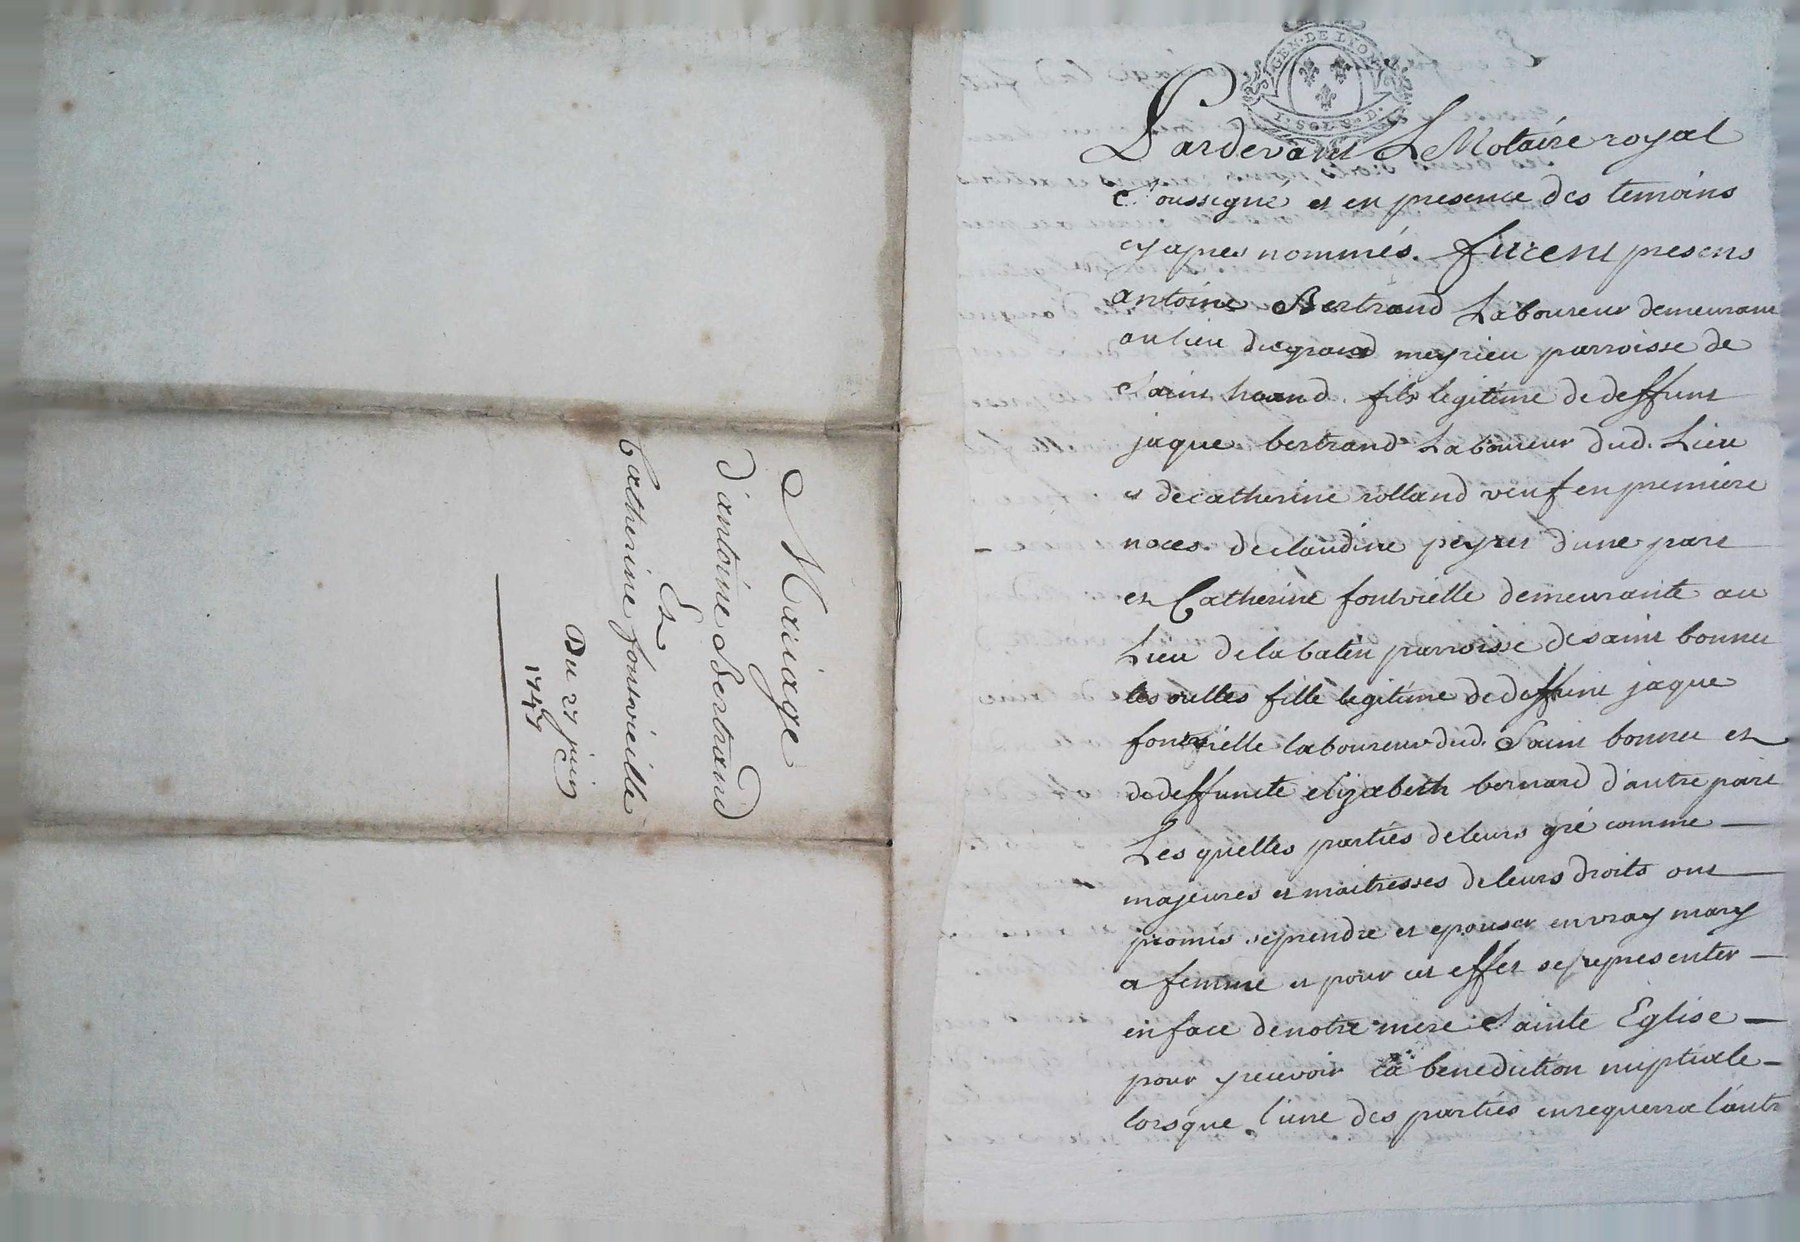 Mariage
d'antoine Bertrand
Et
Catherine fontvieille
Du 27 juin
1747
GEN·DE LYON
Pardevant Le Notaire royal
Soussigné et en presence des temoins
cy apres nommés. furent presens
antoine Bertrand Laboureur demeurant
au lieu du grand meyrieu parroisse de
Saint haand. fils legitime de deffunt
jaque bertrand Laboureur dud. Lieu
et de catherine rolland veuf en premiere
noces. de claudine peyret d'une part
et Catherine fontvielle demeurante au
Lieu de la batin parroisse de saint bonnet
les oulles fille legitime de deffunt jaque
fontvielle laboureur dud. Saint bonnet et
de deffuncte elizabeth bernard d'autre part
Les quelles parties de leurs gré comme
majeures et maitresses de leurs droits ont
promis se prendre et epouser en vray mary
et femme et pour cet effet se representer
en face de notre mere Sainte Eglise
pour y recevoir la benediction nuptiale
lorsque l'une des parties en requerra l'autr